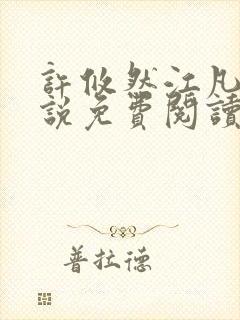 許攸然江凡
說免費閱讀
普拉德